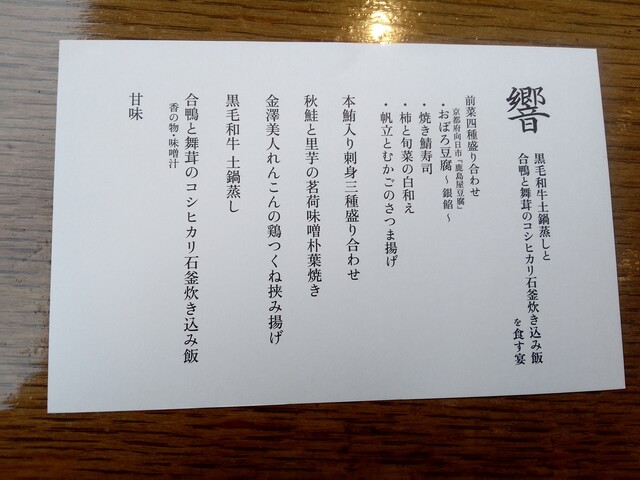 響
黒毛和牛土鍋蒸しと
合鴨と舞茸のコシヒカリ石釜炊き込み飯
を食す宴
前菜四種盛り合わせ
京都府向日市『鹿島屋豆腐』
・おぼろ豆腐～銀餡～
・焼き鯖寿司
・柿と旬菜の白和え
・帆立とむかごのさつま揚げ
本鮪入り刺身三種盛り合わせ
秋鮭と里芋の茗荷味噌朴葉焼き
金澤美人れんこんの鶏つくね挟み揚げ
黒毛和牛 土鍋蒸し
合鴨と舞茸のコシヒカリ石釜炊き込み飯
香の物・味噌汁
甘味